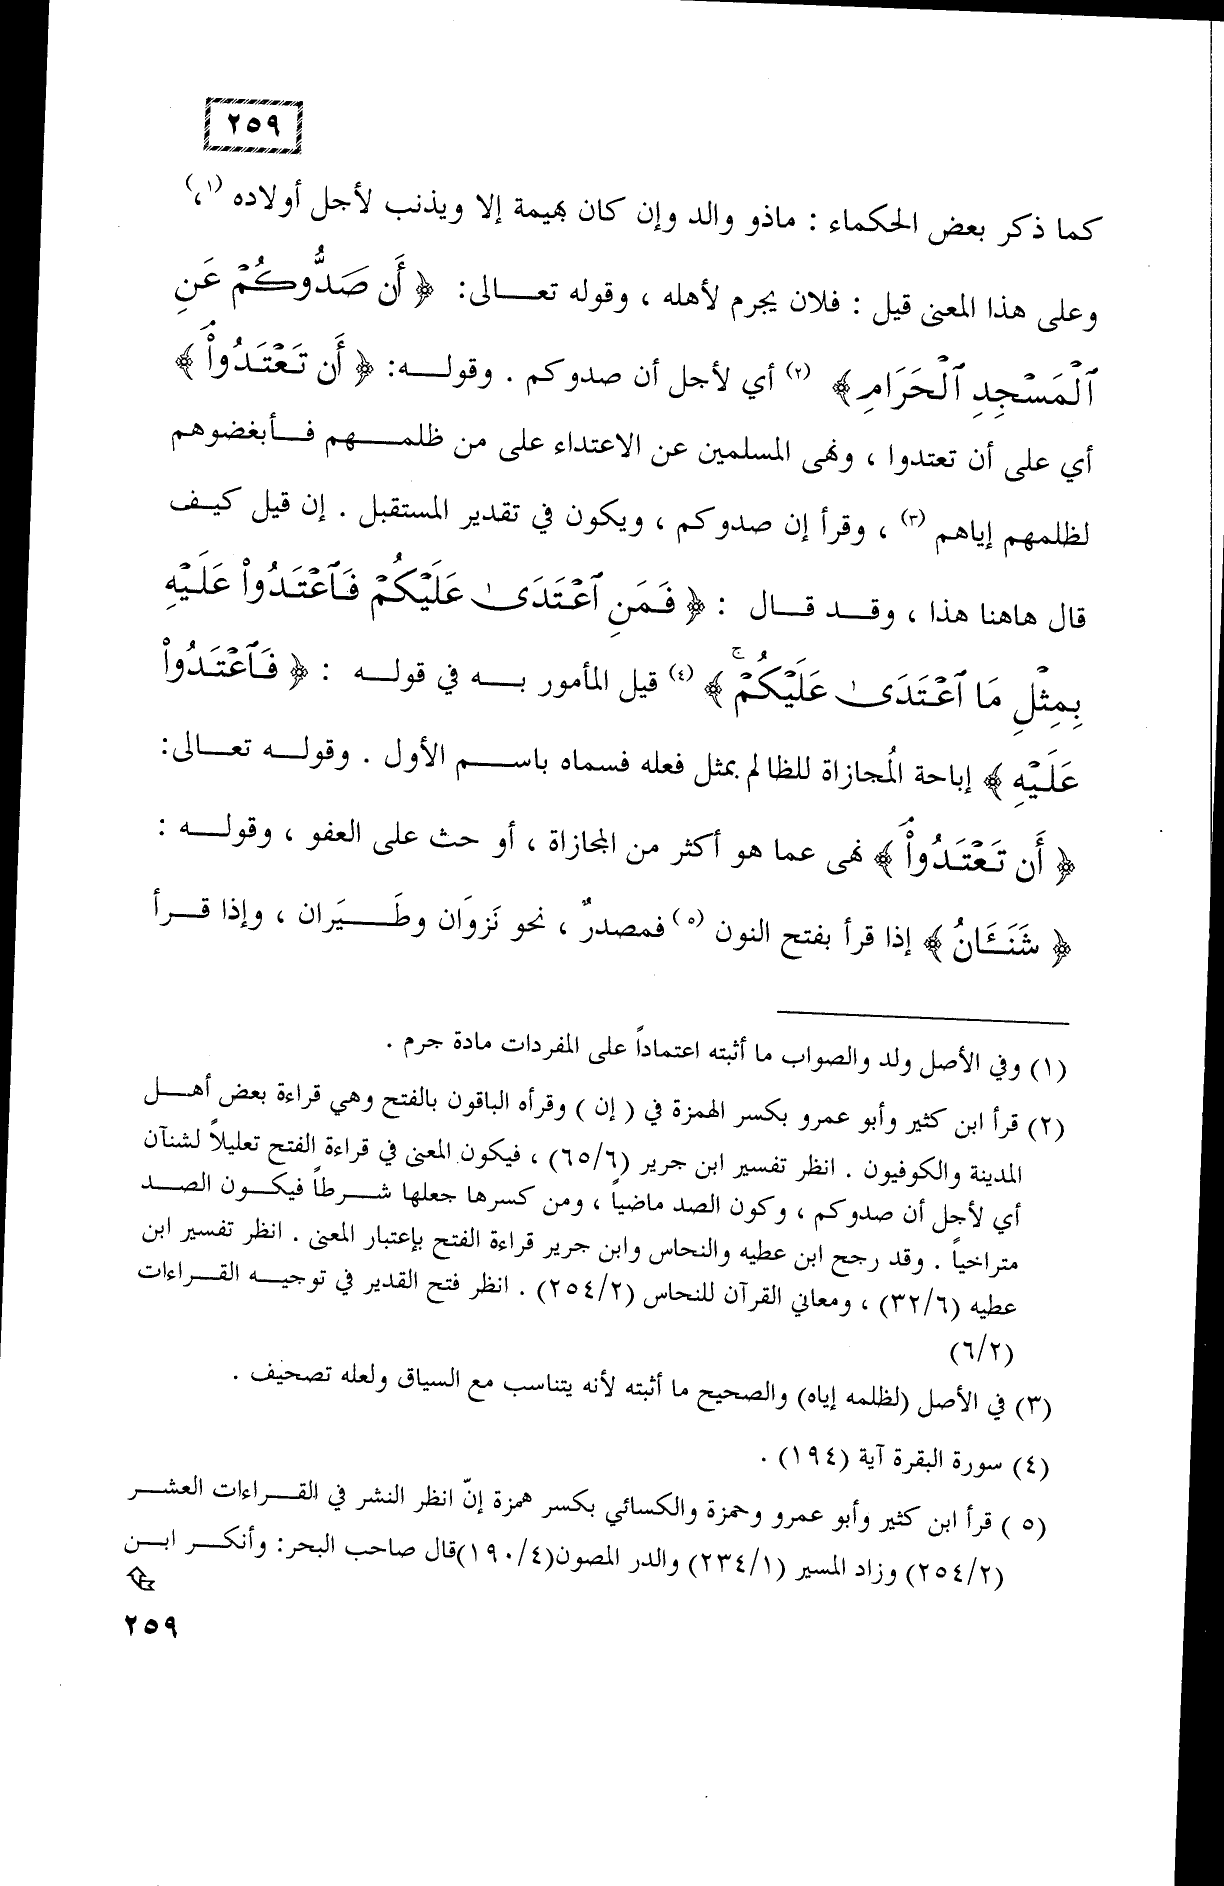 ٢٥٩
كما ذكر بعض الحكماء : ماذو والد وإن كان بهيمة إلا ويذنب لأجل أولاده (١)،
وعلى هذا المعنى قيل : فلان يجرم لأهله ، وقوله تعالى: ﴿ أَن صَدُّوكُمْ عَنِ
ٱلْمَسْجِدِ ٱلْحَرَامِ ﴾ (٢) أي لأجل أن صدوكم . وقوله: ﴿ أَن تَعْتَدُواْ ﴾
أي على أن تعتدوا ، ونهى المسلمين عن الاعتداء على من ظلمهم فأبغضوهم
لظلمهم إياهم (٣) ، وقرأ إن صدوكم ، ويكون في تقدير المستقبل . إن قيل كيف
قال هاهنا هذا ، وقد قال : ﴿ فَمَنِ ٱعْتَدَىٰ عَلَيْكُمْ فَٱعْتَدُواْ عَلَيْهِ
بِمِثْلِ مَا ٱعْتَدَىٰ عَلَيْكُمْ ۚ ﴾ (٤) قيل المأمور به في قوله : ﴿ فَٱعْتَدُواْ
عَلَيْهِ ﴾ إباحة المُجازاة للظالم بمثل فعله فسماه باسم الأول . وقوله تعالى:
﴿ أَن تَعْتَدُواْ ﴾ نهى عما هو أكثر من المجازاة ، أو حث على العفو ، وقوله :
﴿ شَنَـَٔانُ ﴾ إذا قرأ بفتح النون (٥) فمصدرٌ ، نحو نَزوَان وطَيَران ، وإذا قرأ
(١) وفي الأصل ولد والصواب ما أثبته اعتماداً على المفردات مادة جرم .
(٢) قرأ ابن كثير وأبو عمرو بكسر الهمزة في ( إن ) وقرأه الباقون بالفتح وهي قراءة بعض أهل
المدينة والكوفيون . انظر تفسير ابن جرير (٦٥/٦) ، فيكون المعنى في قراءة الفتح تعليلاً لشنآن
أي لأجل أن صدوكم ، وكون الصد ماضياً ، ومن كسرها جعلها شرطاً فيكون الصد
متراخياً . وقد رجح ابن عطيه والنحاس وابن جرير قراءة الفتح بإعتبار المعنى . انظر تفسير ابن
عطيه (٣٢/٦) ، ومعاني القرآن للنحاس (٢٥٤/٢) . انظر فتح القدير في توجيه القراءات
(٦/٢)
(٣) في الأصل (لظلمه إياه) والصحيح ما أثبته لأنه يتناسب مع السياق ولعله تصحيف .
(٤) سورة البقرة آية (١٩٤) .
(٥ ) قرأ ابن كثير وأبو عمرو وحمزة والكسائي بكسر همزة إنّ انظر النشر في القراءات العشر
(٢٥٤/٢) وزاد المسير (٢٣٤/١) والدر المصون(١٩٠/٤)قال صاحب البحر: وأنكر ابن
٢٥٩